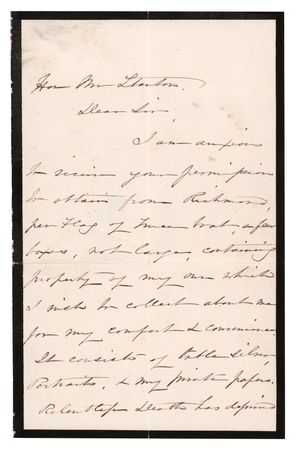 Hon Mr Stanton.
Dear Sir,
I am anxious
to receive your permission
to obtain from Richmond,
per Flag of Truce boat a few
boxes, not large, containing
property of my own which
I wish to collect about me
for my comfort & convenience.
It consists of Table Silver,
Portraits, & my private papers.
Relentless Death has deprived